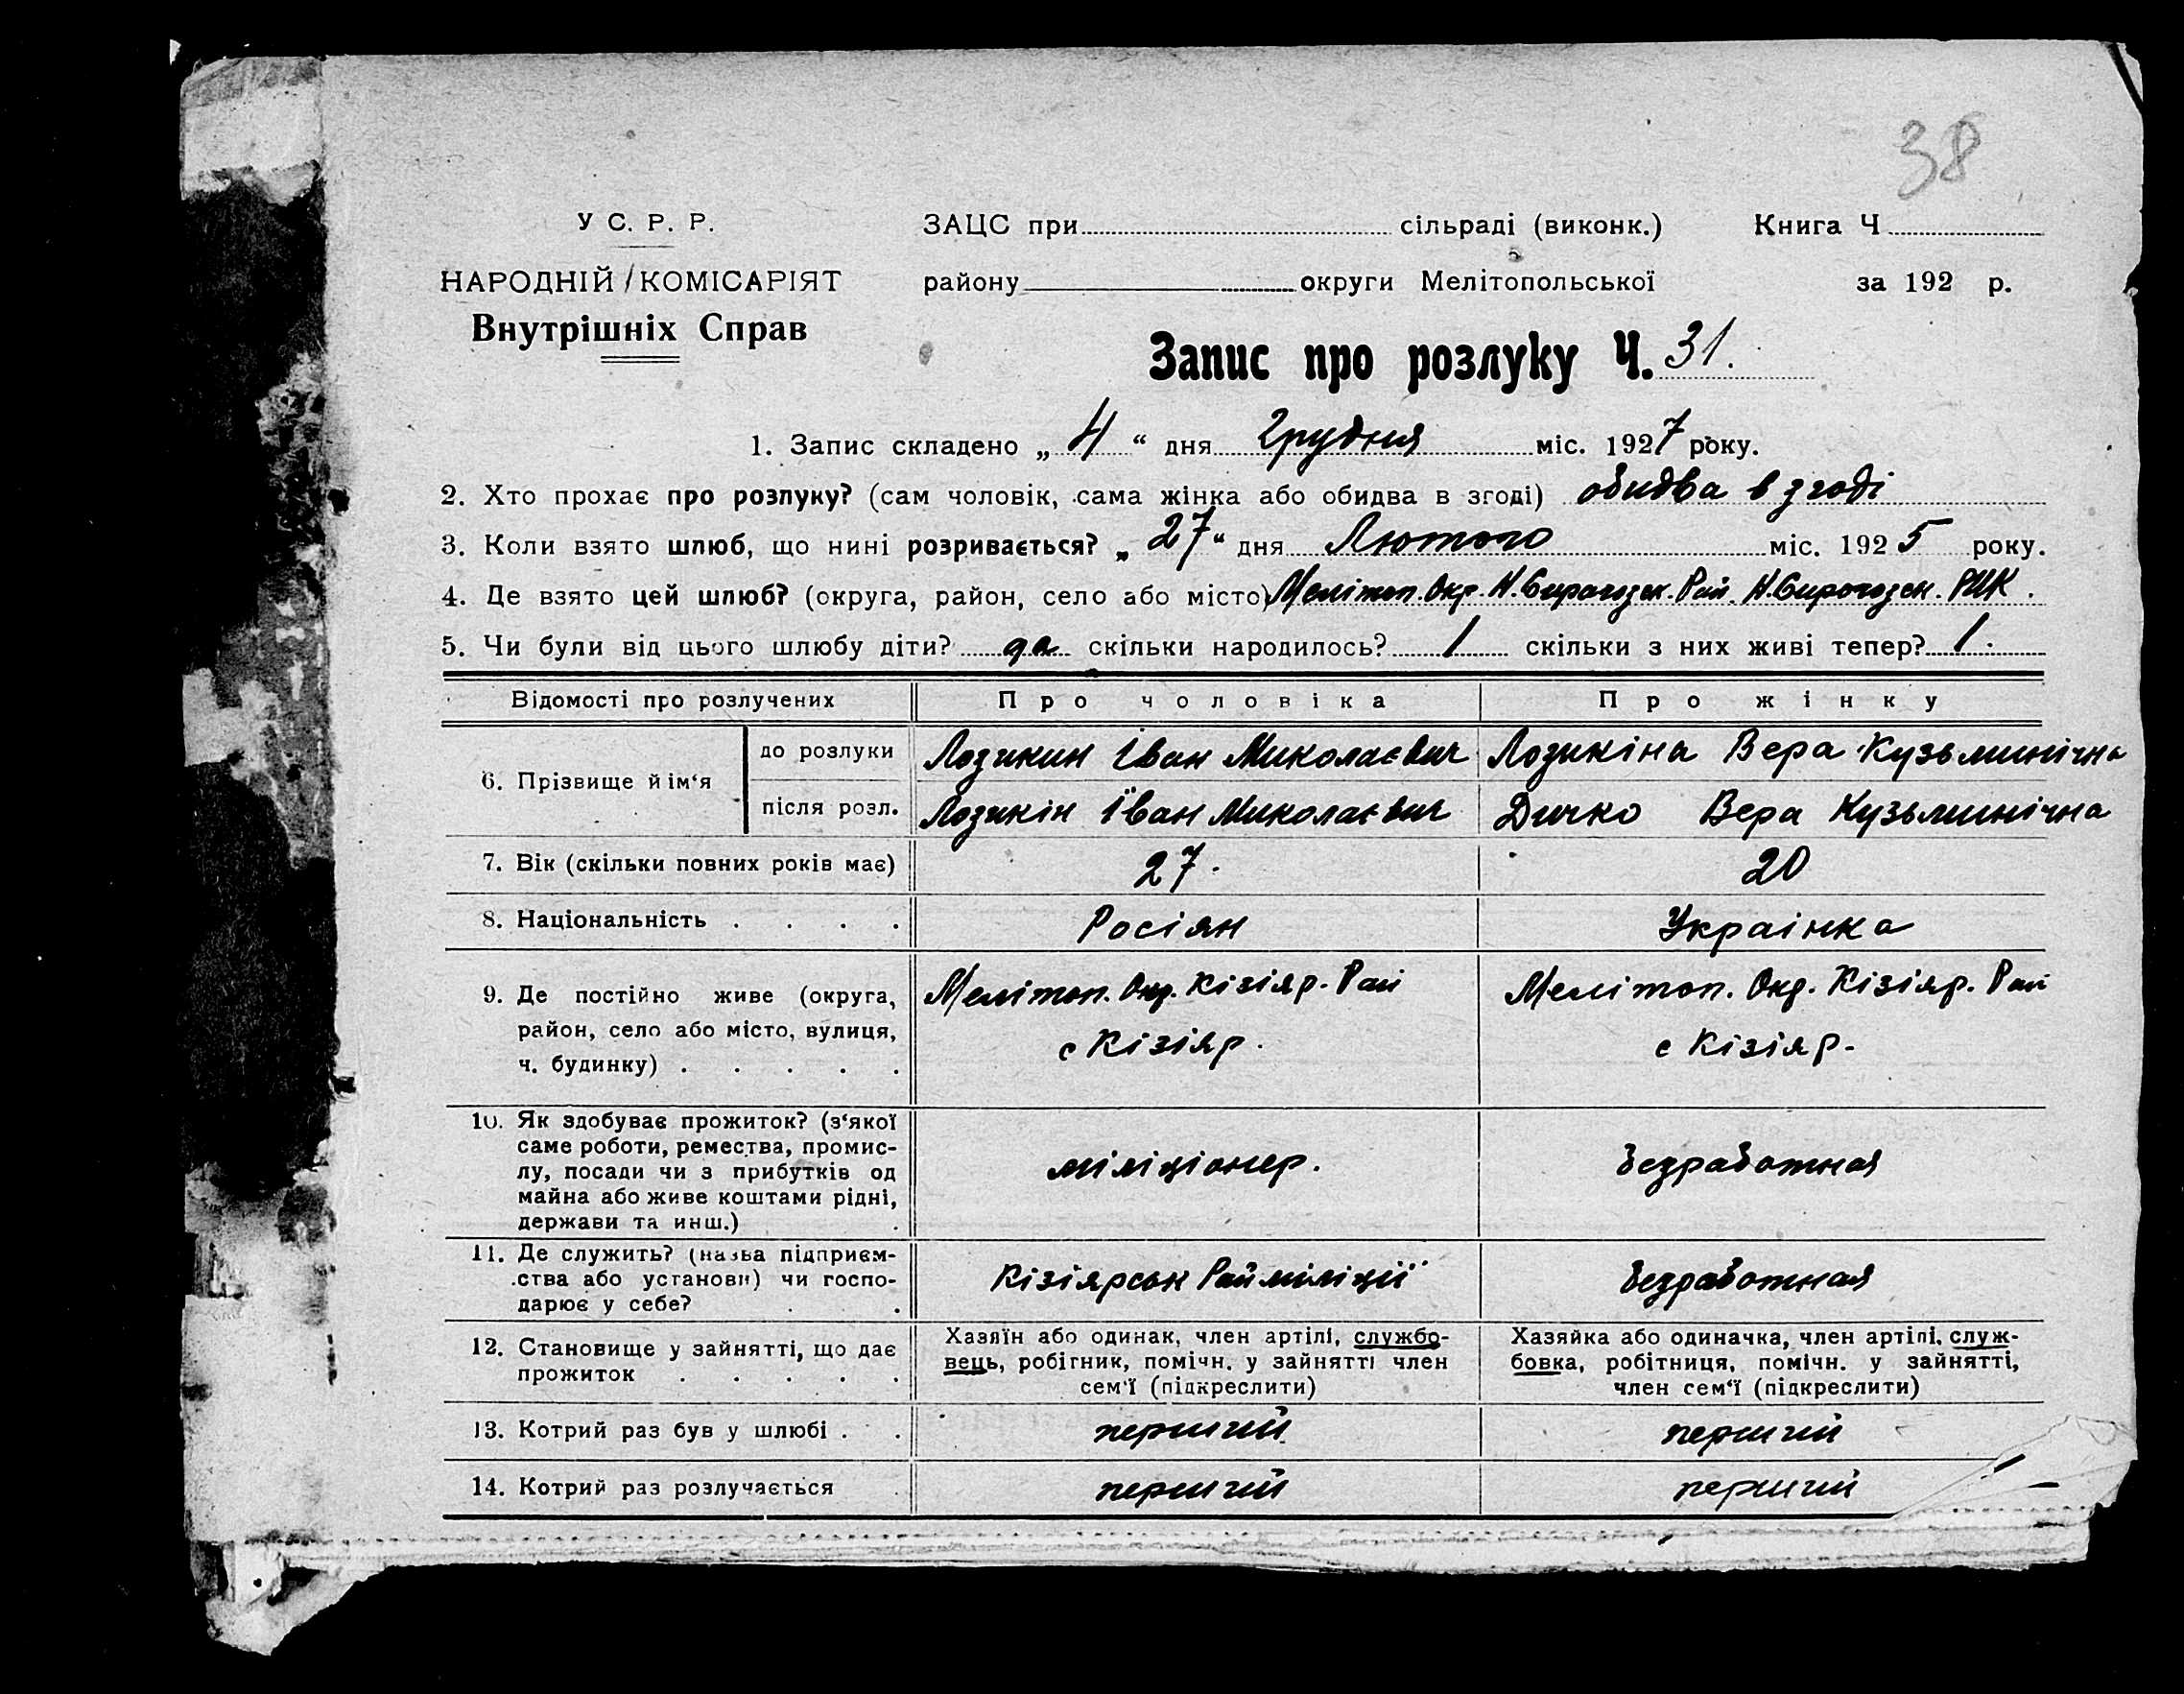 38
У С. Р. Р.
НАРОДНІЙ КОМІСАРІЯТ
Внутрішніх Справ
ЗАЦС при сільраді (виконк.) Книга Ч
району округи Мелітопольської за 192 р.
Запис про розлуку Ч. 31.
1. Запис складено „ 4 “ дня Грудня міс. 1927 року.
2. Хто прохає про розлуку? (сам чоловік, сама жінка або обидва в згоді) обидва в згоді
3. Коли взято шлюб, що нині розривається? „ 27 “ дня Лютого міс. 1925 року.
4. Де взято цей шлюб? (округа, район, село або місто) Мелітоп. Окр. Н. Сирагозск. Рай. Н. Сирогозск. РИК.
5. Чи були від цього шлюбу діти? да скільки народилось? 1 скільки з них живі тепер? 1.
Відомості про розлучених Про чоловіка Про жінку
6. Прізвище й ім‘я
до розлуки Лозикин Іван Миколаєвич Лозикіна Вера Кузьминічна
після розл. Лозикін Іван Миколаєвич Дичко Вера Кузьминічна
7. Вік (скільки повних років має) 27. 20
8. Національність . . . . Росіян Украінка
9. Де постійно живе (округа,
район, село або місто, вулиця,
ч. будинку) . . . . .
Мелітоп. Окр. Кізіяр. Рай
с Кізіяр.
Мелітоп. Окр. Кізіяр. Рай
с Кізіяр.
10. Як здобуває прожиток? (з‘якої
саме роботи, ремества, промис-
лу, посади чи з прибутків од
майна або живе коштами рідні,
держави та инш.) .
міліціонер.
безработная
11. Де служить? (назва підприєм-
ства або установи) чи госпо-
дарює у себе? . .
Кізіярськ Райміліції
безработная
12. Становище у зайнятті, що дає
прожиток . . . . .
Хазяїн або одинак, член артілі, службо-
вець, робітник, помічн. у зайнятті член
сем‘ї (підкреслити)
Хазяйка або одиначка, член артілі, служ-
бовка, робітниця, помічн. у зайнятті,
член сем‘ї (підкреслити)
13. Котрий раз був у шлюбі . . перший перший
14. Котрий раз розлучається перший перший